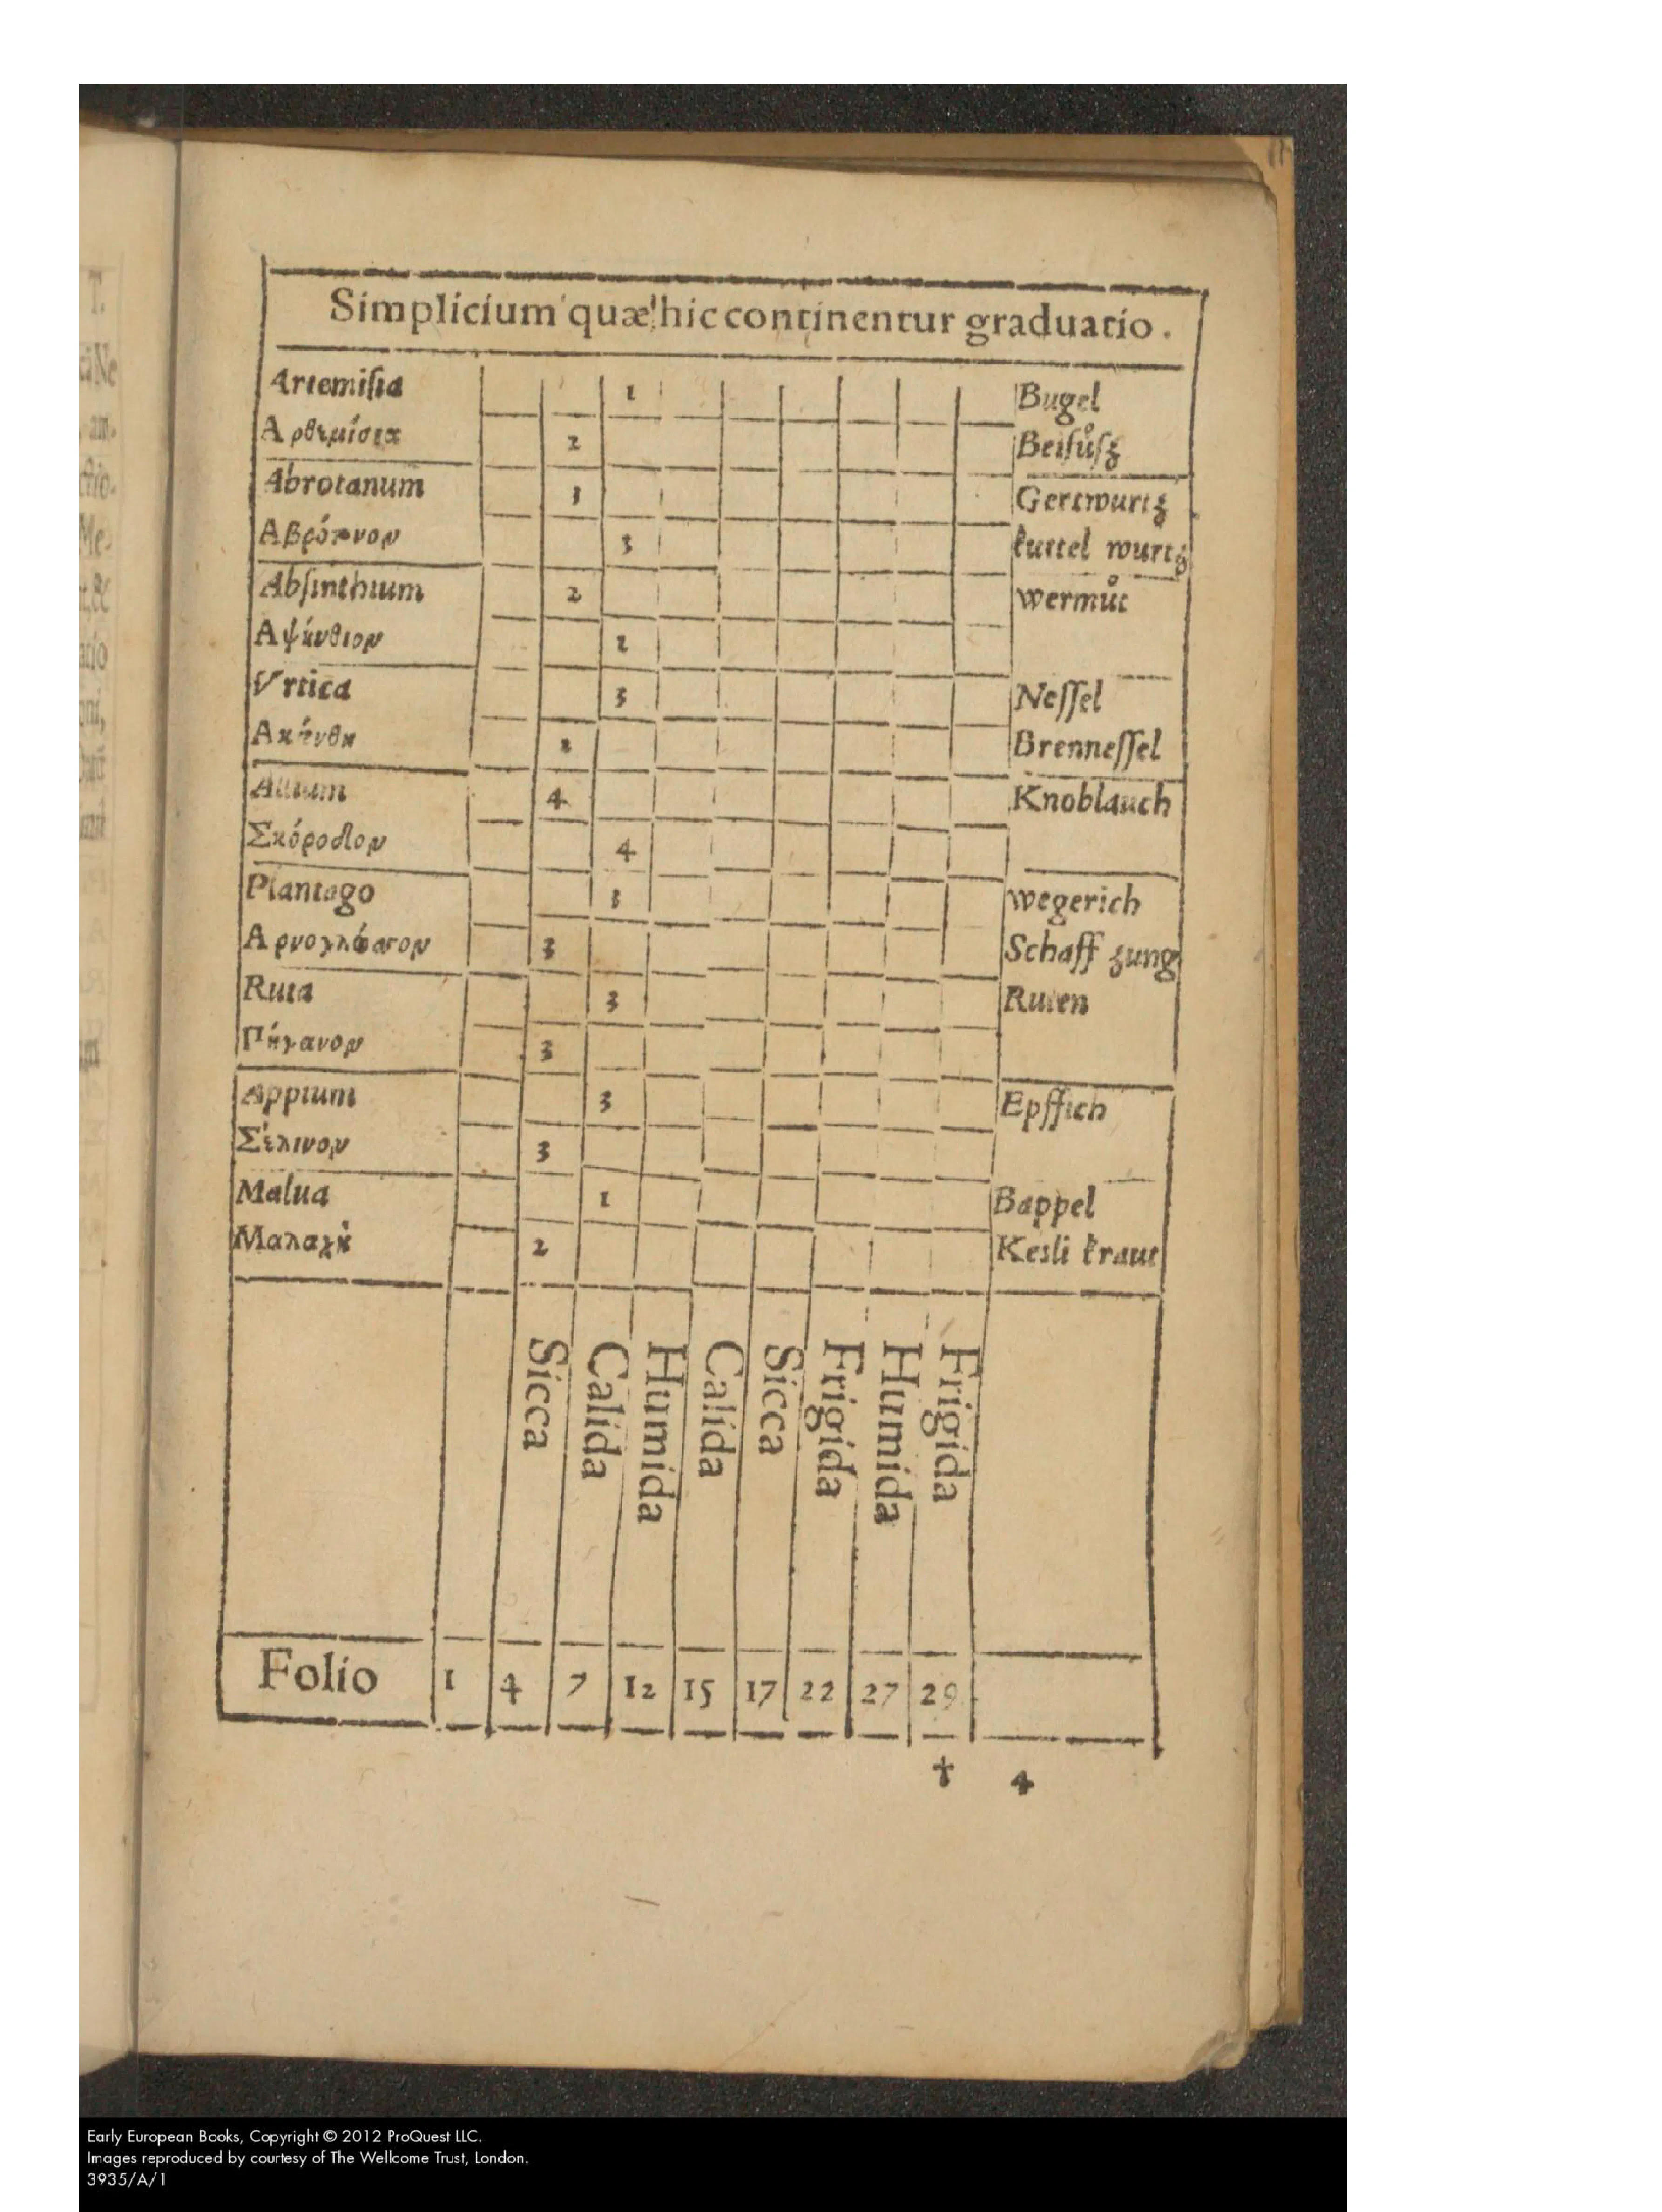 Simplicium quæ hic continentur graduatio.
Artemisia 1 Bugel
Αρθεμίσια 2 Beifůsz
Abrotanum 3 Gertwurtz
Αβρότονον 3 kuttel wurtz
Absinthium 2 wermůt
Αψίνθιον 1
Vrtica 3 Nessel
Ακάνθα Brennessel
Allium 4 Knoblauch
Σκόροδον 4
Plantago 3 wegerich
Αρνογλώσσον 3 Schaff zung
Ruta 3 Ruten
Πήγανον 3
Appium 3 Epffich
Σέλινον 3
Malua 1 Bappel
Μαλαχὴ 2 Kesli kraut
Sicca Calida Humida Calida Sicca Frigida Humida Frigida
Folio 1 4 7 12 15 17 22 27 29
† 4
Early European Books, Copyright © 2012 ProQuest LLC.
Images reproduced by courtesy of The Wellcome Trust, London.
3935/A/1